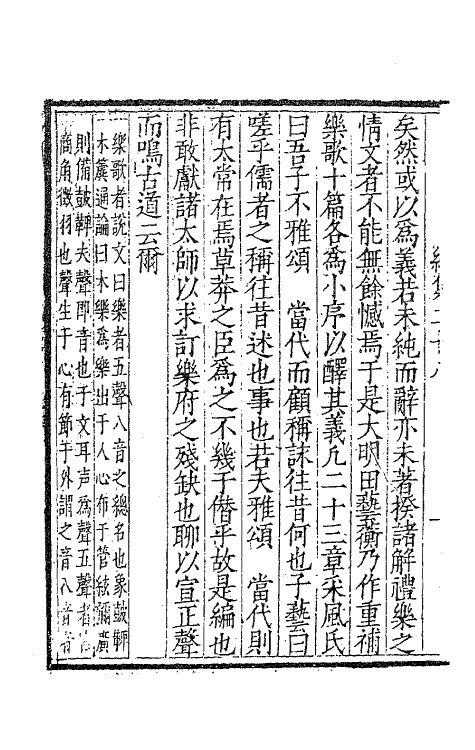 矣然或以為義若未純而辭亦未著揆諸解禮樂之
情文者不能無餘憾焉于是大明田藝蘅乃作重補
樂歌十篇各為小序以醳其義凡二十三章采風氏
曰吾子不雅頌　當代而顧稱誄往昔何也子藝曰
嗟乎儒者之稱往昔述也事也若夫雅頌　當代則
有太常在焉草莽之臣為之不幾于僭乎故是編也
非敢獻諸太師以求訂樂府之殘缺也聊以宣正聲
而鳴古道云爾
樂歌者說文曰樂者五聲八音之總名也象鼓鞞
木簴通論曰木樂為樂出于人心布于管絃彌廣
則備鼓鞞夫聲即音也于文耳声為聲五聲者宮
商角徵羽也聲生于心有節于外謂之音八音者